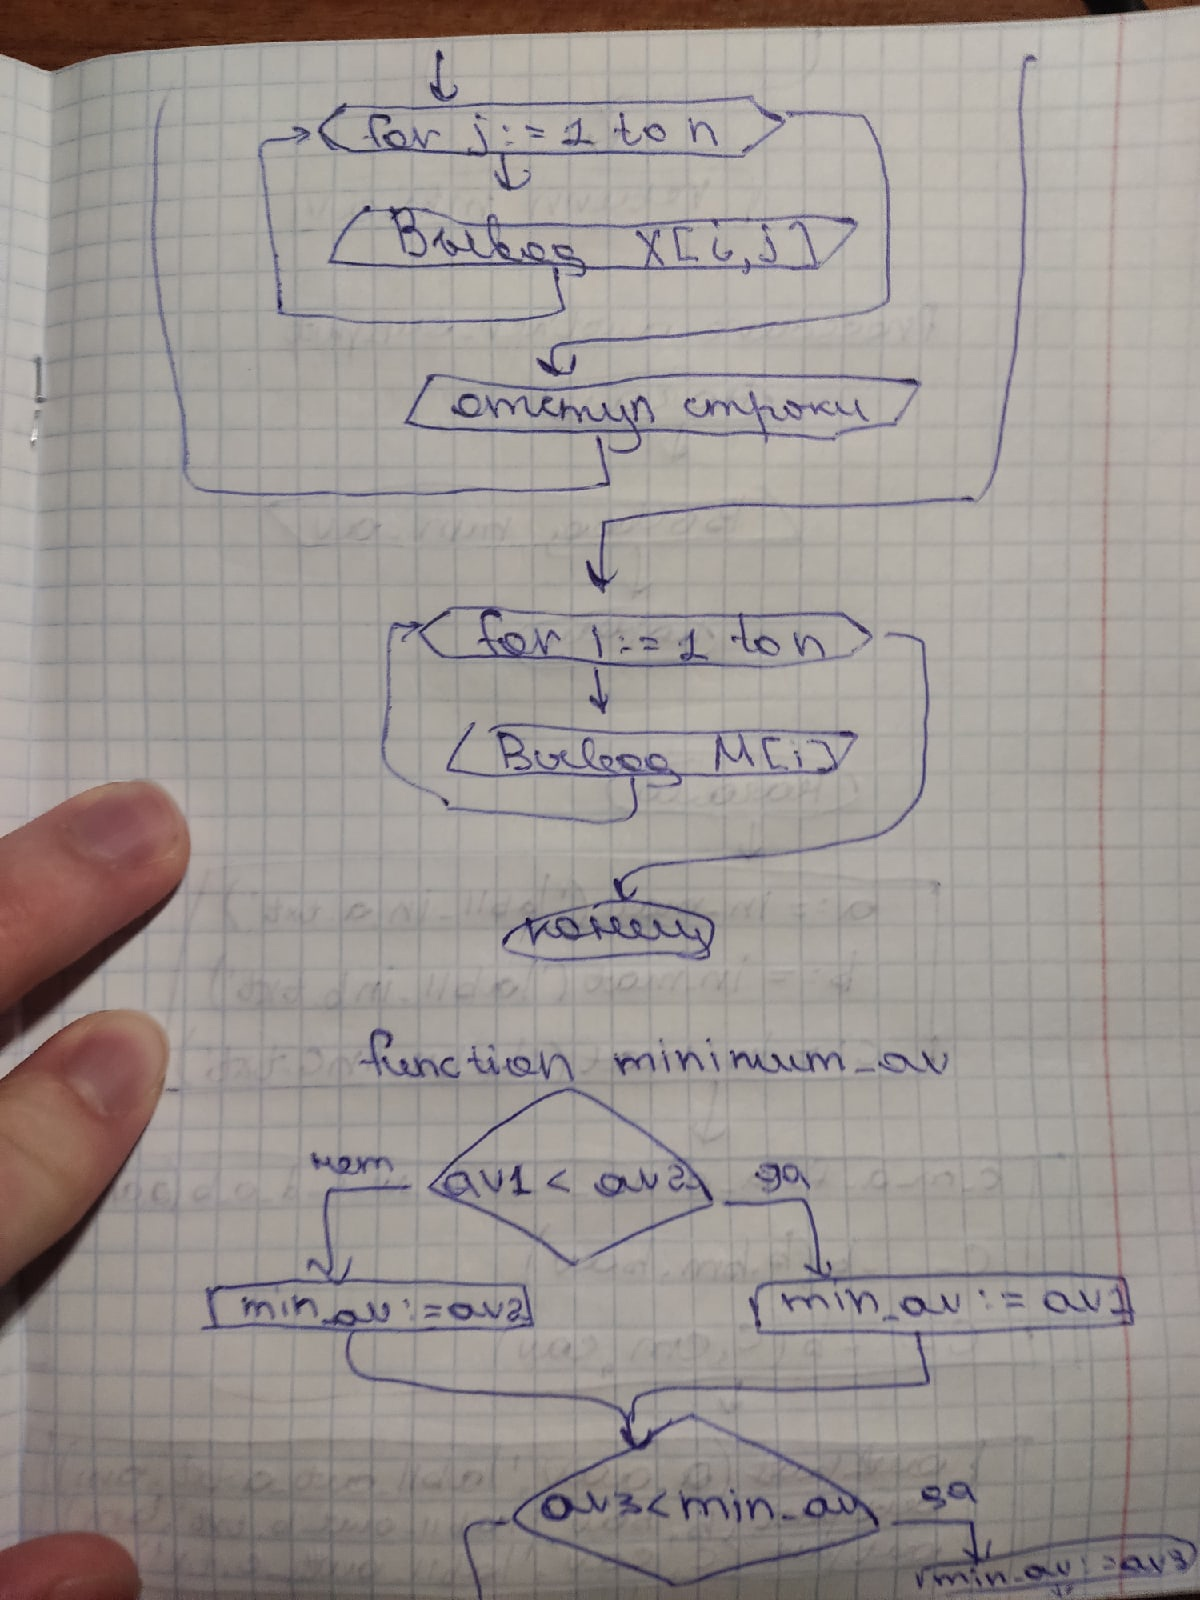 for j:=1 to n
Вывод X[i,j]
отступ строки
for i:=1 to n
Вывод M[i]
конец
function minimum_av
нет av1 < av2 да
min_av:=av2 min_av:=av1
av3<min_av да
min_av:=av3